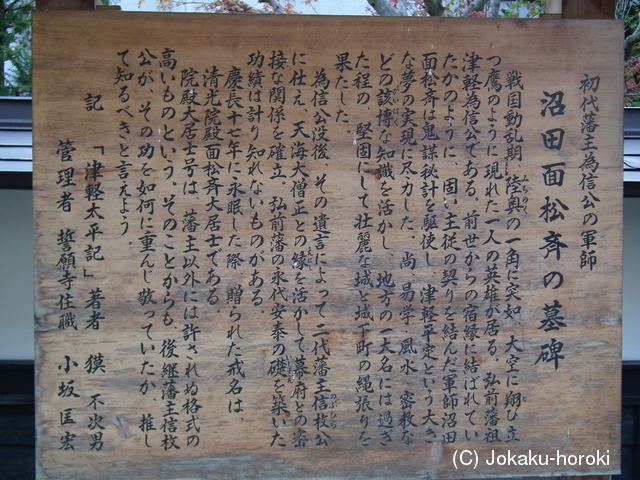 初代藩主為信公の軍師
沼田面松斉の墓碑
戦国動乱期、陸奥の一角に突如、大空に翔び立
みちのく
つ鷹のように現れた一人の英雄が居る。弘前藩祖
津軽為信公である。前世からの宿縁に結ばれてい
たかのように、固い主従の契りを結んだ軍師沼田
面松斉は鬼謀秘計を駆使し、津軽平定という大き
な夢の実現に尽力した。尚、易学、風水、密教な
どの該博な知識を活かし、地方の一大名には過ぎ
がいはく
た程の、堅固にして壮麗な城と城下町の縄張りを
果たした。
為信公没後、その遺言によって二代藩主信枚公
のぶひら
に仕え、天海大僧正との縁を活かして幕府との密
接な関係を確立、弘前藩の永代安泰の礎を築いた
功績は計り知れないものがある。
慶長十七年に永眠した際、贈られた戒名は、
清光院殿面松斉大居士である。
院殿大居士号は、藩主以外には許されぬ格式の
高いものという。そのことからも、後継藩主信枚
公が、その功を如何に重んじ敬っていたか、推し
て知るべきと言えよう。
記 「津軽太平記」著者 獏 不次男
管理者 誓願寺住職 小坂匡宏
(C) Jokaku-horoki